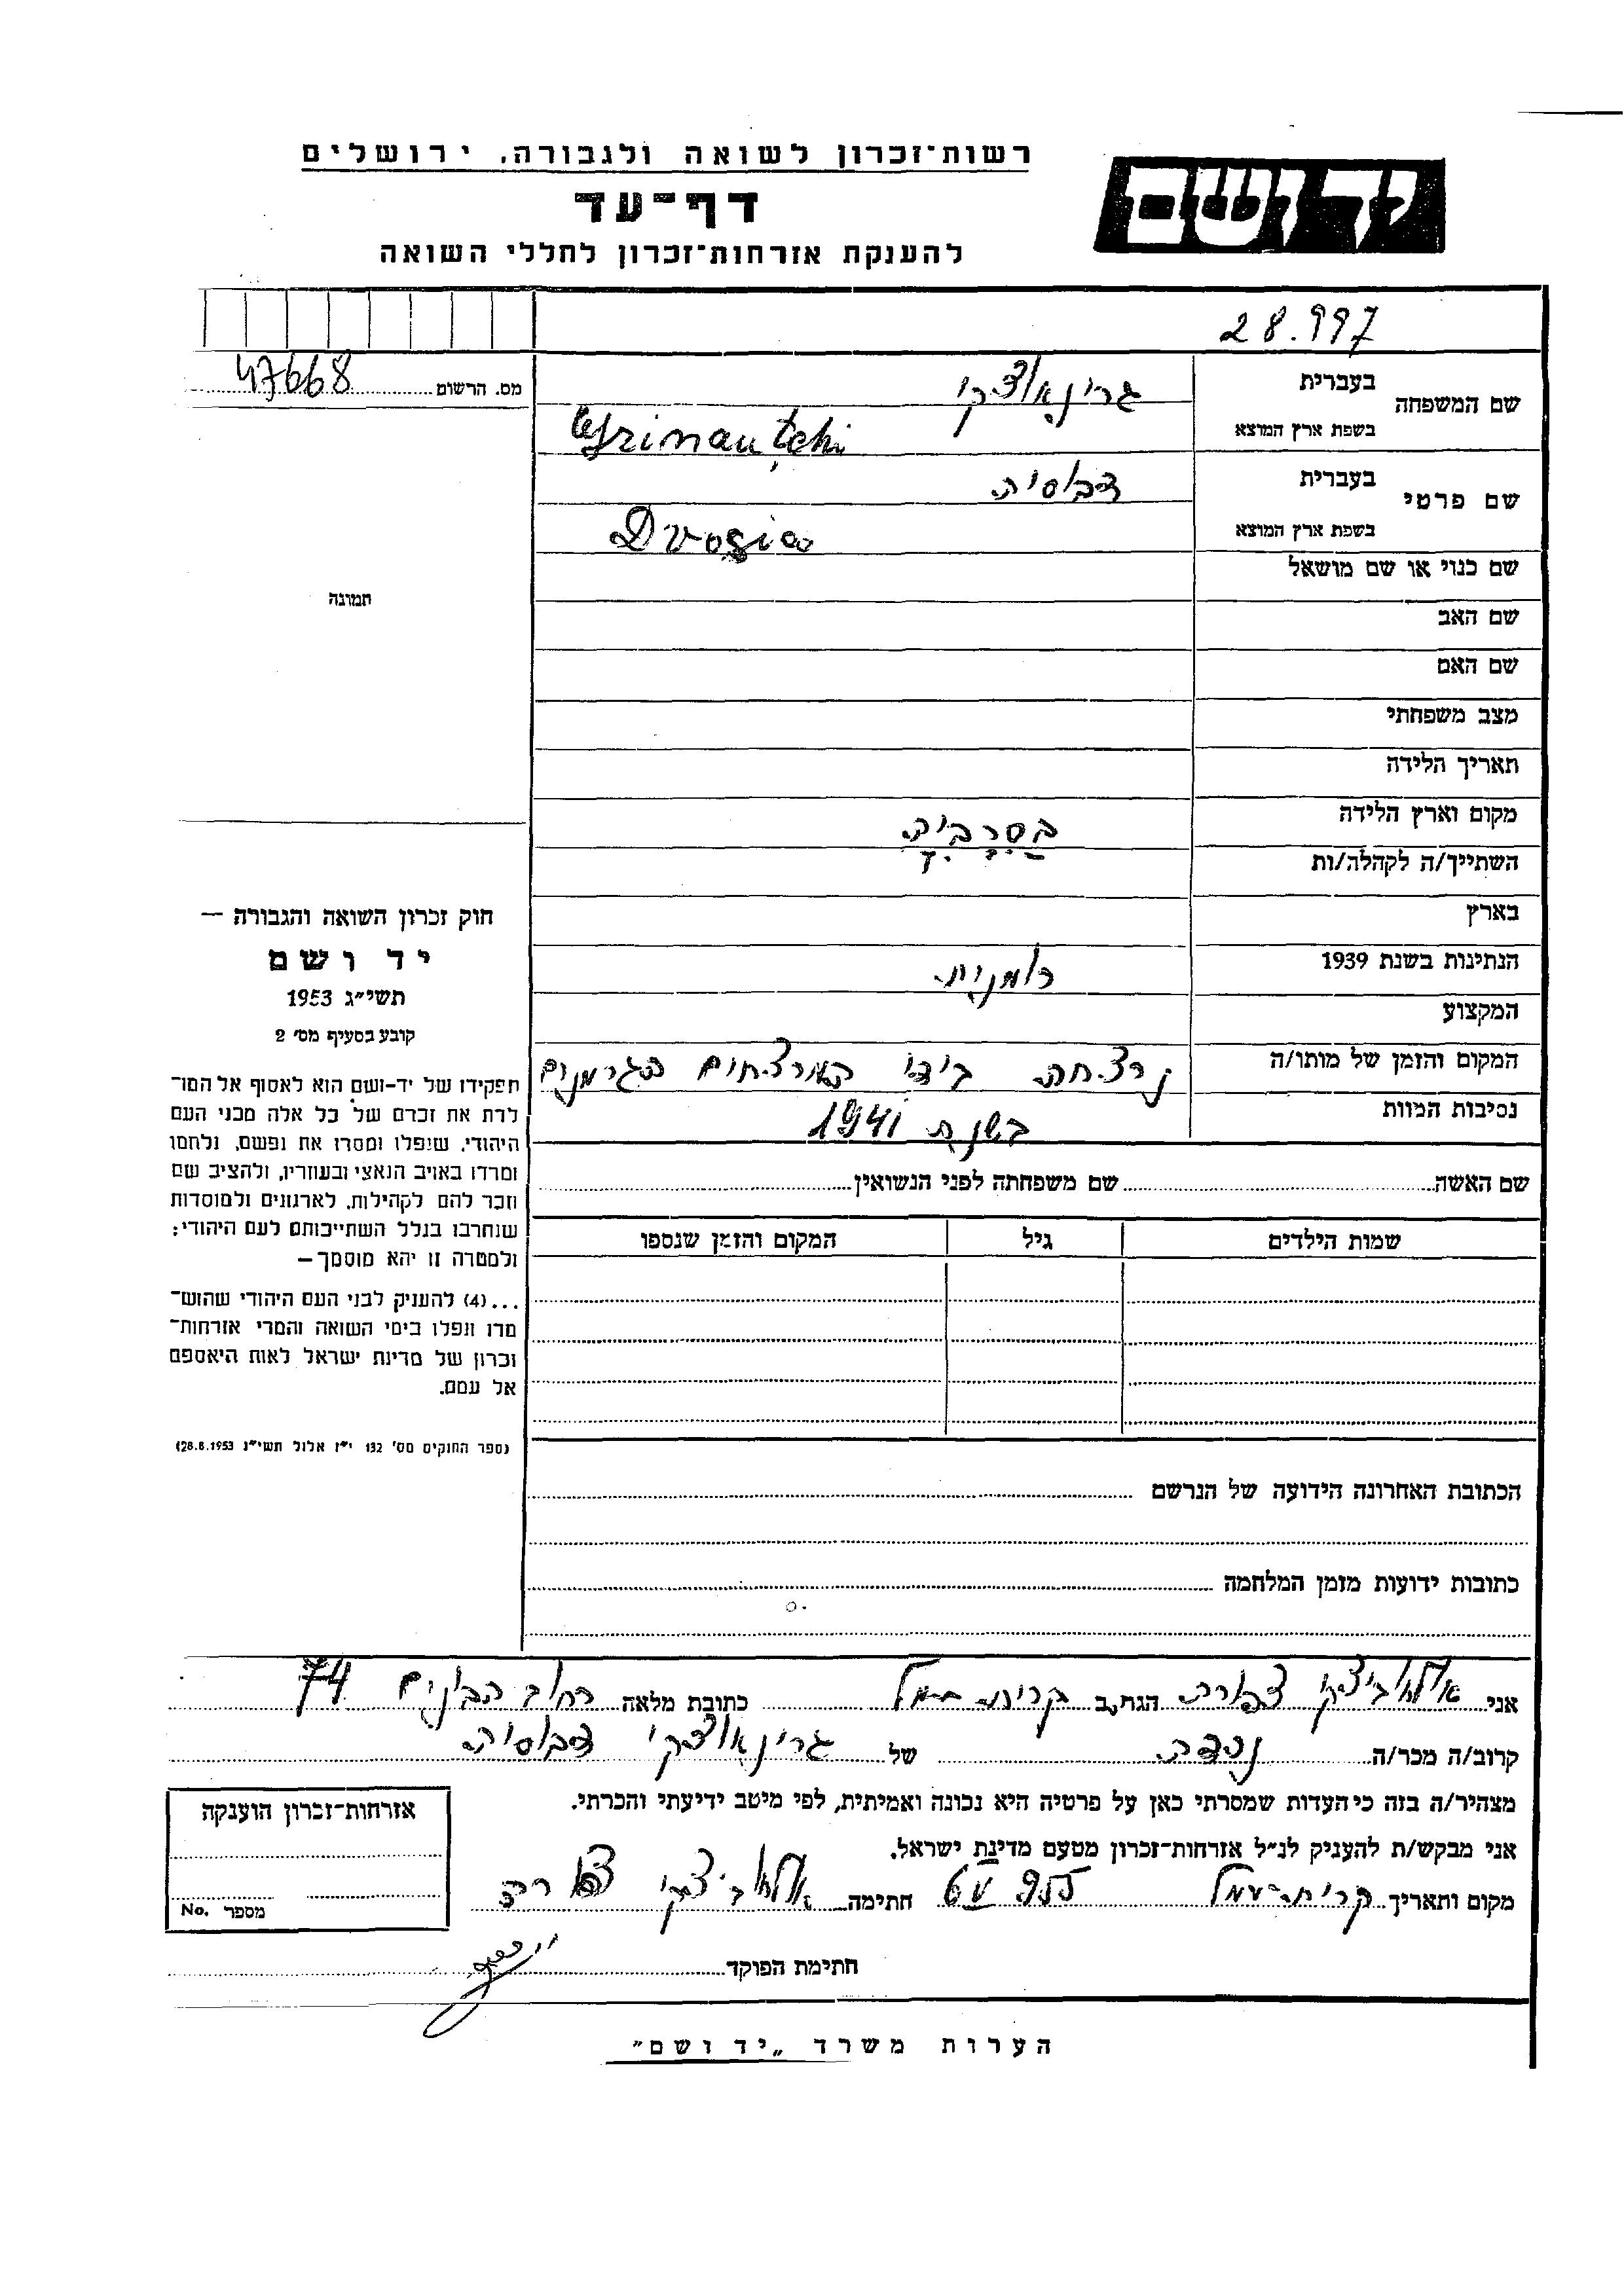 יד ושם
רשות־זכרון לשואה ולגבורה, ירושלים
דף־עד
להענקת אזרחות־זכרון לחללי השואה
28.997
מס. הרשום 47668
שם המשפחה
בעברית גרינאוצקי
בשפת ארץ המוצא Grinauţchi
שם פרטי
בעברית דבוסיה
בשפת ארץ המוצא Dvosia
שם כנוי או שם מושאל
שם האב
שם האם
מצב משפחתי
תאריך הלידה
מקום וארץ הלידה בסרביה
השתייך/ה לקהלה/ות
בארץ
הנתינות בשנת 1939 רומנית
המקצוע
המקום והזמן של מותו/ה נרצחה בידי המרצחים הגרמנים
נסיבות המוות בשנת 1941
שם האשה שם משפחתה לפני הנשואין
שמות הילדים גיל המקום והזמן שנספו
הכתובת האחרונה הידועה של הנרשם
כתובות ידועות מזמן המלחמה
תמונה
חוק זכרון השואה והגבורה —
יד ושם
תשי״ג 1953
קובע בסעיף מס׳ 2
תפקידו של יד-ושם הוא לאסוף אל המו־
לדת את זכרם של כל אלה מבני העם
היהודי, שנפלו ומסרו את נפשם, נלחמו
ומרדו באויב הנאצי ובעוזריו, ולהציב שם
וזכר להם לקהילות, לארגונים ולמוסדות
שנחרבו בגלל השתייכותם לעם היהודי;
ולמטרה זו יהא מוסמך—
...(4) להעניק לבני העם היהודי שהוש־
מדו ונפלו בימי השואה והמרי אזרחות־
זכרון של מדינת ישראל לאות היאספם
אל עמם.
(ספר החוקים מס׳ 132 י״ז אלול תשי״ג 28.8.1953)
אני צפורה הגר/ה ב קרית עמל כתובת מלאה רחוב הבונים 74
קרוב/ה מכר/ה נכדה של גרינאוצקי דבוסיה
מצהיר/ה בזה כי העדות שמסרתי כאן על פרטיה היא נכונה ואמיתית, לפי מיטב ידיעתי והכרתי.
אני מבקש/ת להעניק לנ״ל אזרחות־זכרון מטעם מדינת ישראל.
מקום ותאריך קרית-עמל חתימה צפורה
חתימת הפוקד
אזרחות־זכרון הוענקה
מספר No.
הערות משרד „יד ושם״